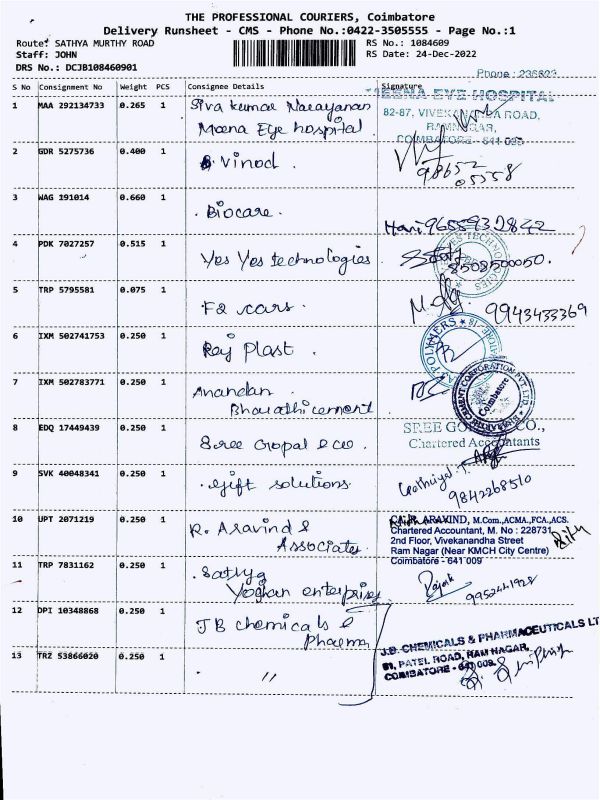 THE PROFESSIONAL COURIERS, Coimbatore
Delivery Runsheet - CMS - Phone No.:0422-3505555 - Page No.:1
Route: SATHYA MURTHY ROAD
RS No.: 1084609
Staff: JOHN
RS Date: 24-Dec-2022
DRS No.: DCJB108460901
S No Consignment No Weight PCS Consignee Details Signature
Phone : 236823
1 MAA 292134733 0.265 1 Siva kumar Narayanan
Meena Eye hospital
MEENA EYE HOSPITAL
82-87, VIVEKANANDA ROAD,
RAMNAGAR,
COIMBATORE - 641 009
2 GDR 5275736 0.400 1 Vinod.
98652
05558
3 WAG 191014 0.660 1 . Biocare.
Hari 9655932842
4 PDK 7027257 0.515 1 Yes Yes technologies
YES TECHNOLOGIES
8508500050.
5 TRP 5795581 0.075 1 F2 cars.
9943433369
6 IXM 502741753 0.250 1 Raj Plast.
POLYMERS
7 IXM 502783771 0.250 1 Anandan
Bharathi cement
CEMENT CORPORATION PVT. LTD.
Coimbatore
8 EDQ 17449439 0.250 1 Sree Gopal & co.
SREE GOPAL & CO.,
Chartered Accountants
9 SVK 40048341 0.250 1 . gift solutions
9842268510
10 UPT 2071219 0.250 1 R. Aravind &
Associates
CA. R. ARAVIND, M.Com.,ACMA.,FCA.,ACS.
Chartered Accountant, M. No : 228731
2nd Floor, Vivekanandha Street
Ram Nagar (Near KMCH City Centre)
Coimbatore - 641 009
11 TRP 7831162 0.250 1 . Sathya
Yoghan enterprises
9952441928
12 DPI 10348868 0.250 1 JB chemicals &
Pharma
J.B. CHEMICALS & PHARMACEUTICALS LT
81, PATEL ROAD, RAM NAGAR,
COIMBATORE - 641 009.
13 TRZ 53866020 0.250 1 . "